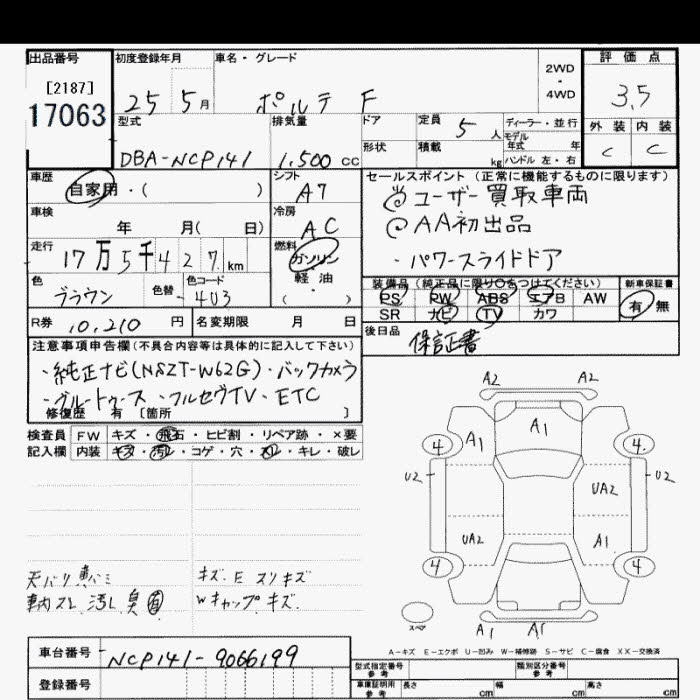 出品番号
[2187]
17063
初度登録年月
25 5月
車名・グレード
ポルテ F
2WD
・
4WD
評価点
3.5
外装 内装
C C
型式
DBA-NCP141
排気量
1.500 cc
ドア
形状
定員
5人
積載
kg
ディーラー・並行
モデル
年式 年
ハンドル 左・右
車歴
自家用・( )
シフト
A7
車検
年 月( 日)
冷房
AC
走行
17万5千427km
燃料
ガソリン
軽油
( )
色
ブラウン
色替
色コード
4U3
R券 10,210 円
名変期限 月 日
セールスポイント(正常に機能するものに限ります)
◎ユーザー買取車両
◎AA初出品
・パワースライドドア
装備品(純正品に限り○をつけてください)
PS PW ABS エアB AW
SR ナビ TV カワ
新車保証書
有 無
後日品
保証書
注意事項申告欄(不具合内容等は具体的に記入して下さい)
・純正ナビ(NSZT-W62G)・バックカメラ
・ブルートゥース・フルセグTV・ETC
修復歴 有 [箇所 ]
検査員 FW キズ・飛石・ヒビ割・リペア跡・×要
記入欄 内装 キズ・汚レ・コゲ・穴・スレ・キレ・破レ
キズ.E スリキズ
車内スレ 汚レ 臭
Wキャップ.キズ.
A2 A2
A1 A1
4 4
U2 U2
UA2
UA2 A1
4 4
スペア
A1 A1
A-キズ E-エクボ U-凹み W-補修跡 S-サビ C-腐食 XX-交換済
車台番号 NCP141-9066199
登録番号
型式指定番号
参考
類別区分番号
参考
車庫証明用
参考
長さ cm 幅 cm 高さ cm